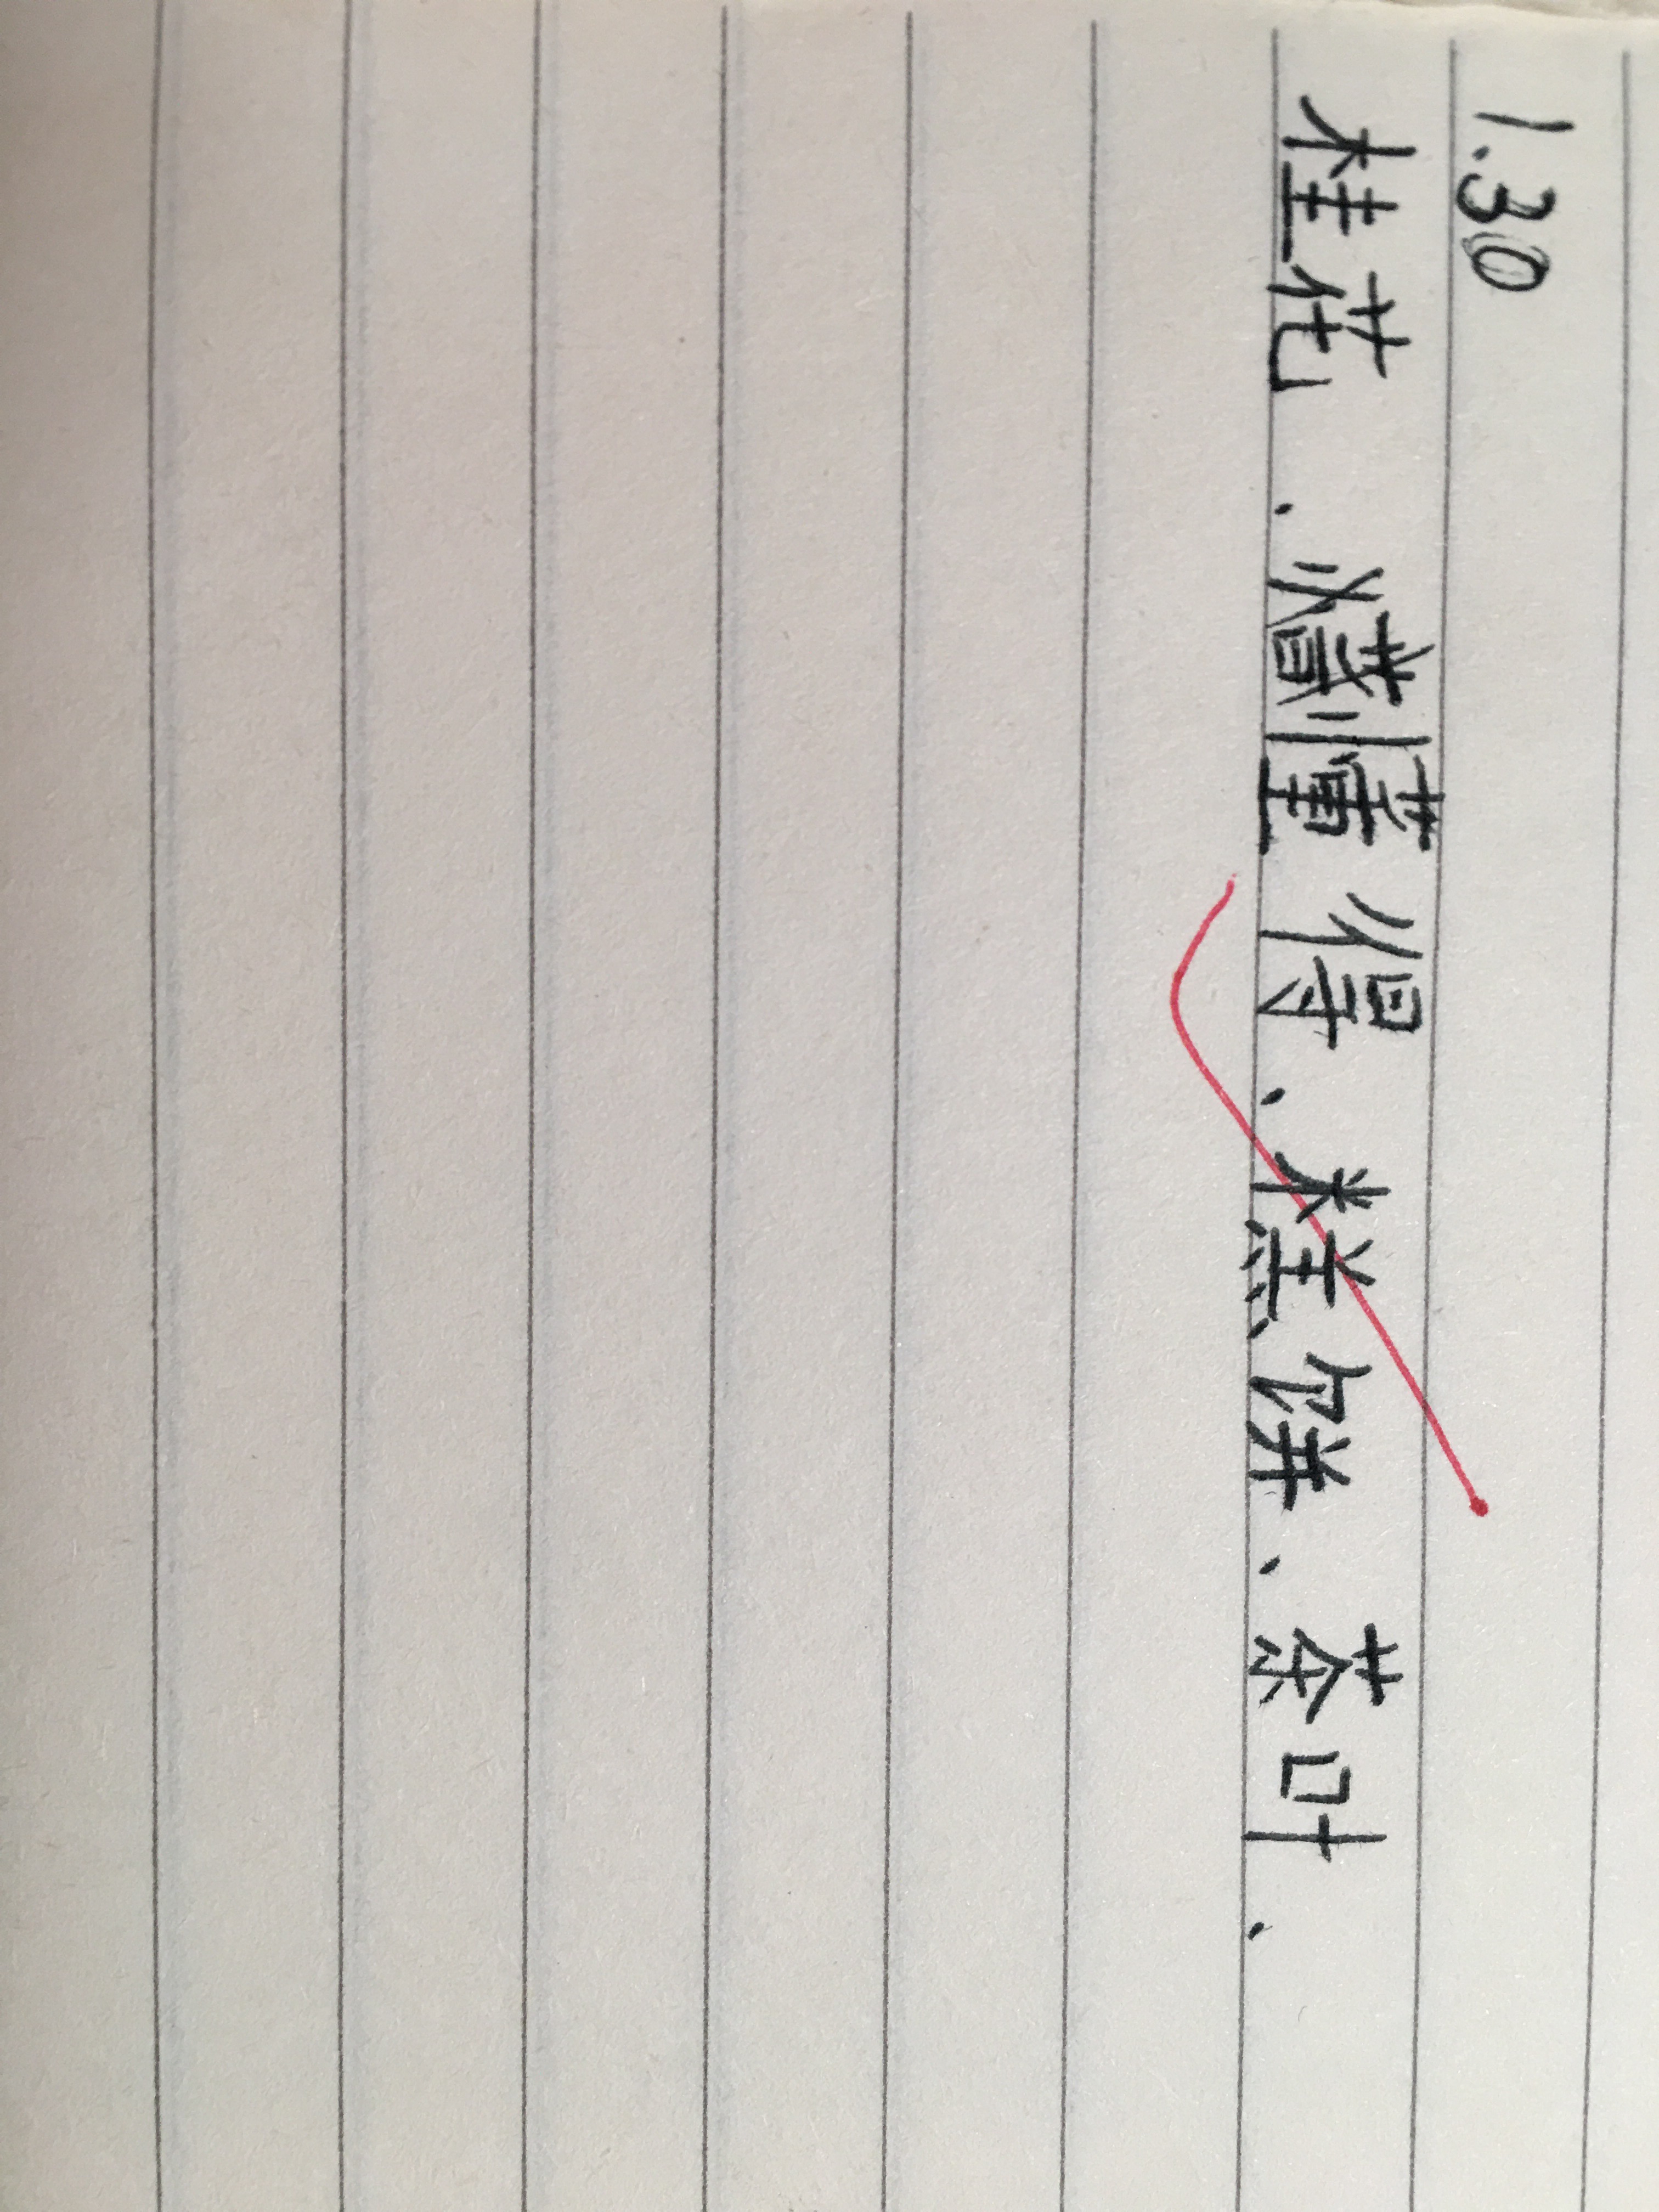 1.30
桂花、懂得、糕饼、茶叶、